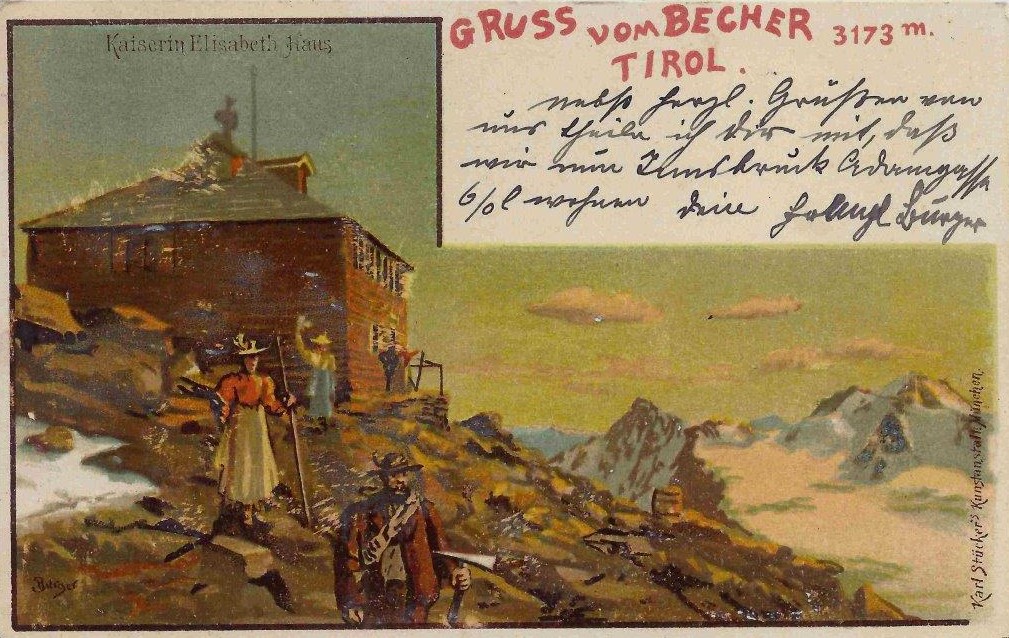 Kaiserin Elisabeth Haus
GRUSS VOM BECHER 3173 m.
TIROL.
nebst herzl. Grüßen von
uns theile ich dir mit, daß
wir nun Innsbruck Adamgasse
6/ol wohnen dein Burger
Burger
Karl Stücker's Kunstanstalt, München.